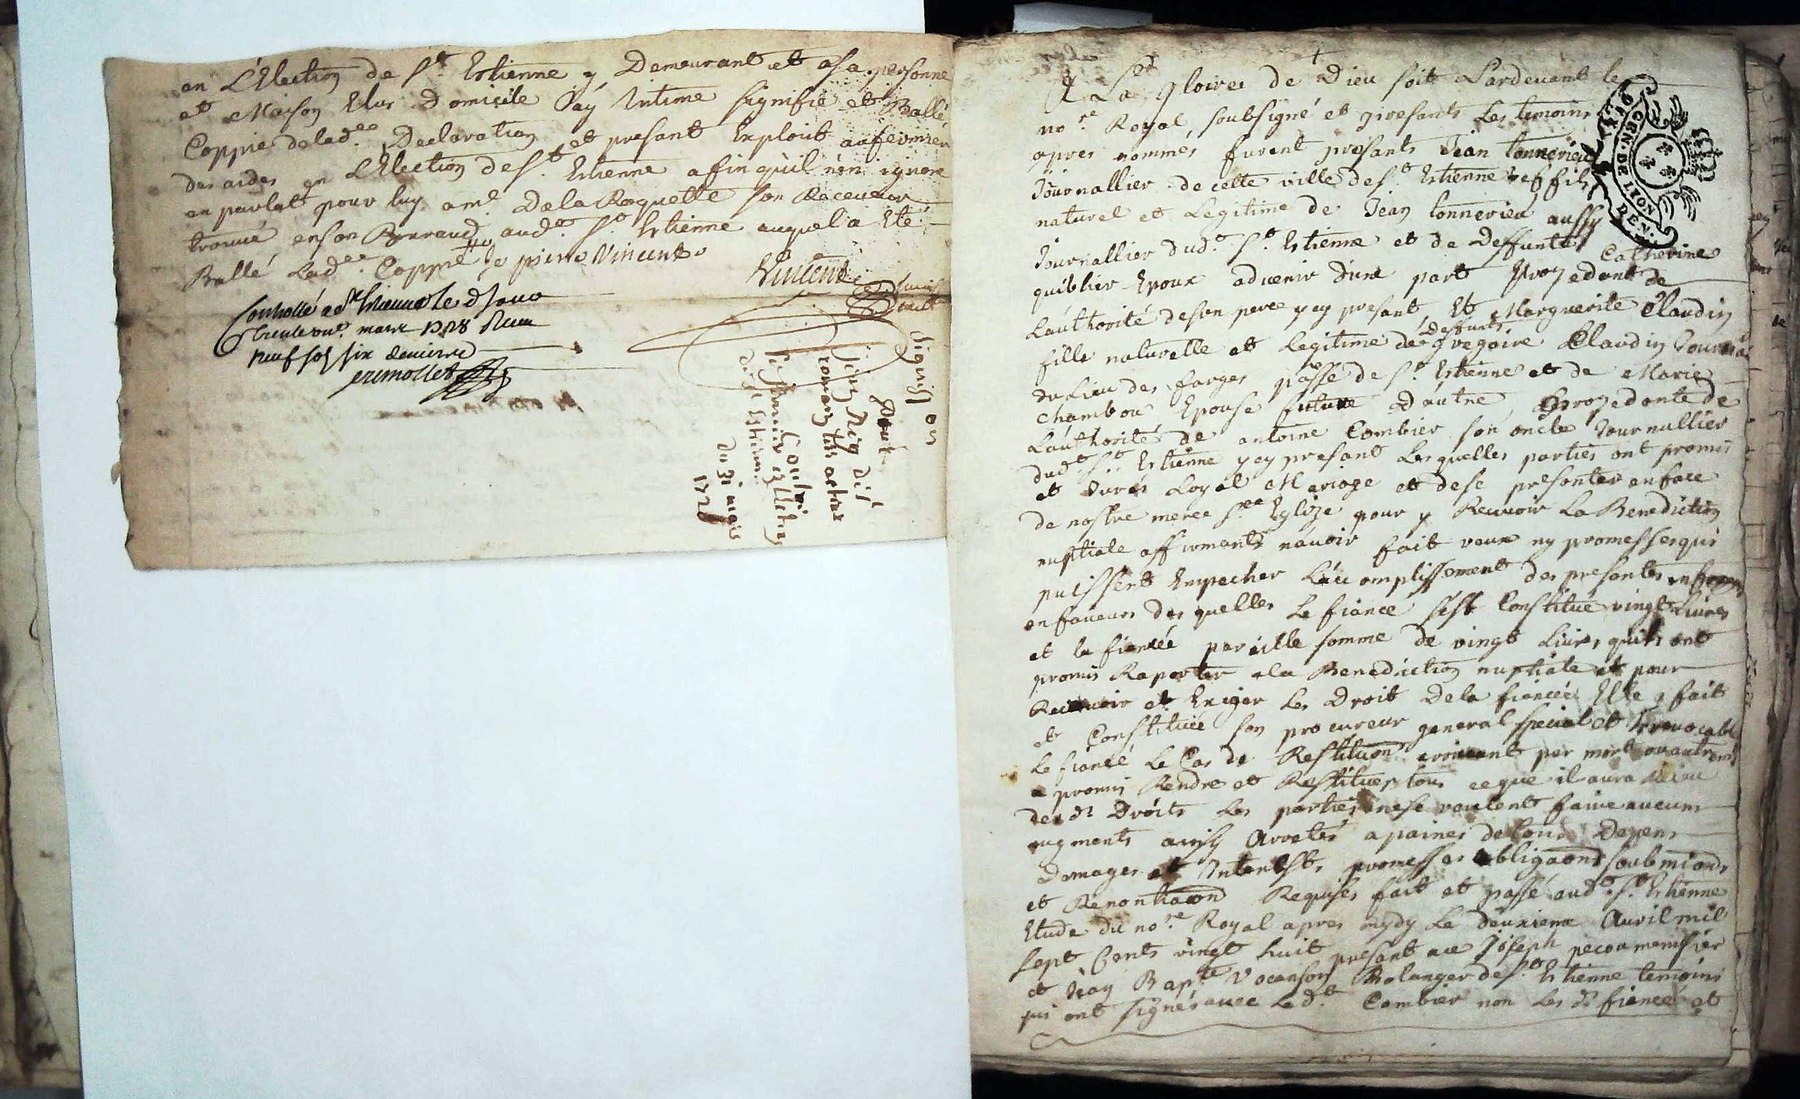 en L'Election de St Estienne y Demeurant et a sa personne
et Maison Elus Domicile Jay Intimé signifié et Ballé
Coppie de lad.e Declaration et presant Exploit au fermier
des aides en L'Election de St Estienne affin quil n'en ignore
en parlant pour luy a mr Dela Roquette son Receveur
trouvé en son Bureau aud. St Estienne auquel a Eté
Ballé Lad.e Coppie Je pierre Vincent
Vincent
Controllé a St Estienne le d Jour
trente un mars 1728 Receu
neuf sols six deniers
Signiffi on
Le fermier
de St Estienne
du 31 mars
1728
A La gloire de Dieu soit Pardevant le
no.re Royal, soubsigné et presents Les temoins
apres nommés furent presants Jean tonnerieu
Journallier de cette ville de St Estienne fils
naturel et Legitime de Jean tonnerieu aussy
Journallier dud. St Estienne et de Deffunte Catherine
quiblier Epoux advenir d'une part procedant de
Lauthorité de son pere ycy presant, Et Marguerite Claudin
fille naturelle et Legitime de deffunts gregoire Claudin
du Lieu des farges pásse de St Estienne et de Marie
Chambon Epouse future D'autre, procedante de
Lauthorité de antoine Combier son oncle Journallier
dud. St Estienne ycy presant Lesquelles parties ont promis
et Jurés Loyal Mariage et de se presenter en face
de nostre mere Ste Eglize pour y Recevoir La Benediction
nuptiale affirmants n'avoir fait veux ny promesses qui
puissent Empecher L'accomplissement des presantes
en faveurs des quelles Le fiancé s'est Constitué vingt Livres
et la fiancée pareille somme de vingt Livres quils ont
promis Raporter a la Benediction nuptiale et pour
Recevoir et Exiger Les Droit de la fiancée Elle a fait
et Constitué son procureur general special et Irrevocable
Le fiancé Le Cas de Restituon avenant par mort ou autrement
a promis Rendre et Restituer tous ce que il aura Receu
des d. Droits Les parties ne se veulent faire aucuns
augments ainsy Arretés a paines de tous Depens
Domages et Interests, promesses obligaons soubmions
et Renontiaon Requises fait et passé aud. St Estienne
Etude du no.re Royal apres mydy Le deuxieme Avril mil
sept Cents vingt huit presant me Joseph menusier
et Jean Bapte Vocanson Bolanger de St Estienne temoins
qui ont signés avec Led. Combier non Les d. fiancés et
GEN. DE LION